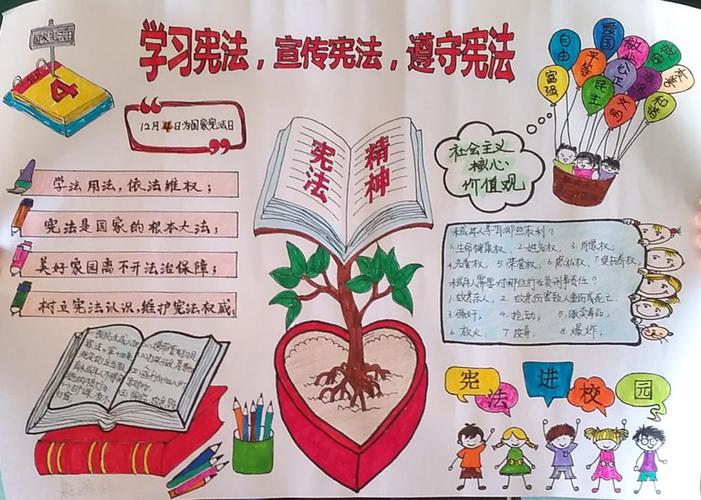 学习宪法，宣传宪法，遵守宪法
国家宪法日
4
12月4日为国家宪法日
学法用法，依法维权；
宪法是国家的根本大法；
美好家园离不开法治保障；
树立宪法认识，维护宪法权威；
宪法
精神
自由
爱国
敬业
平等
公正
富强
民主
文明
和谐
社会主义
核心
价值观
未成年人享有哪些权利？
1.生命健康权、2.姓名权、3.肖像权、
5.荣誉权、6.隐私权、7.受教育权
1.故意杀人，2.故意伤害致人重伤或死亡，
4.抢劫，5.贩卖毒品，
6.放火 7.投毒 8.爆炸，
宪法进校园